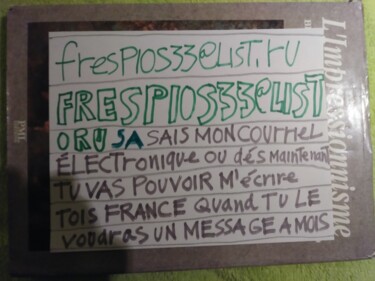 fresPIOS33@LIST.rU
FRESPIOS33@LIST
ORU SA SAIS MON COUrriEL
ÉLECTroniQUE OU dés MainTenanT
TU VAS POUVOIR M'écrire
TOIS FRANCE QuanD TU LE
VOUDrAS UN MESSAGE A MOIS
L'Impressionnisme
PML